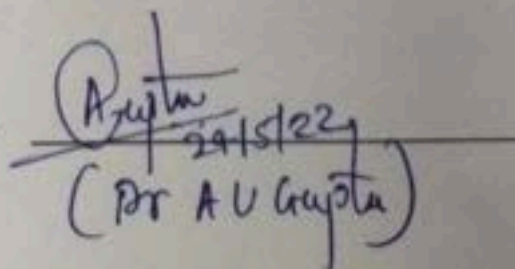 AGupta
29/5/22
(Dr A U Gupta)